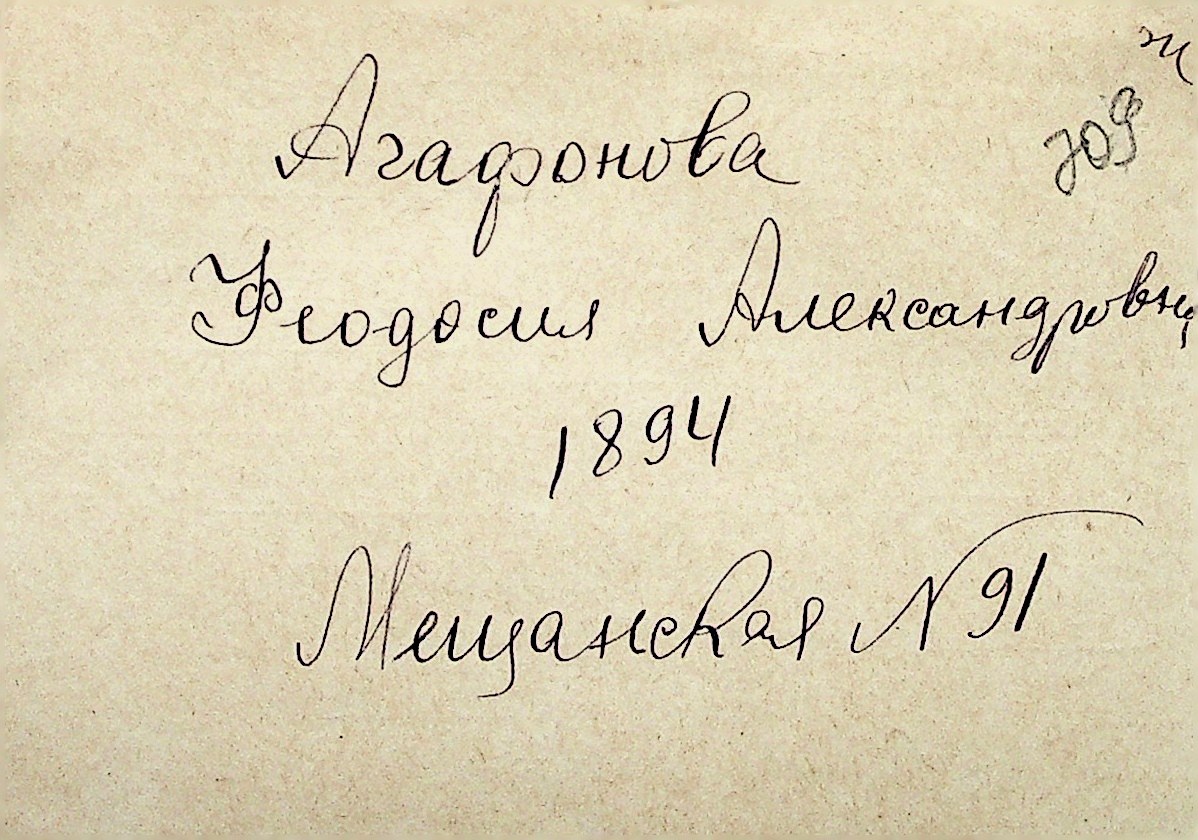 Агафонова
709
Феодосия Александровна
1894
Мещанская N 91